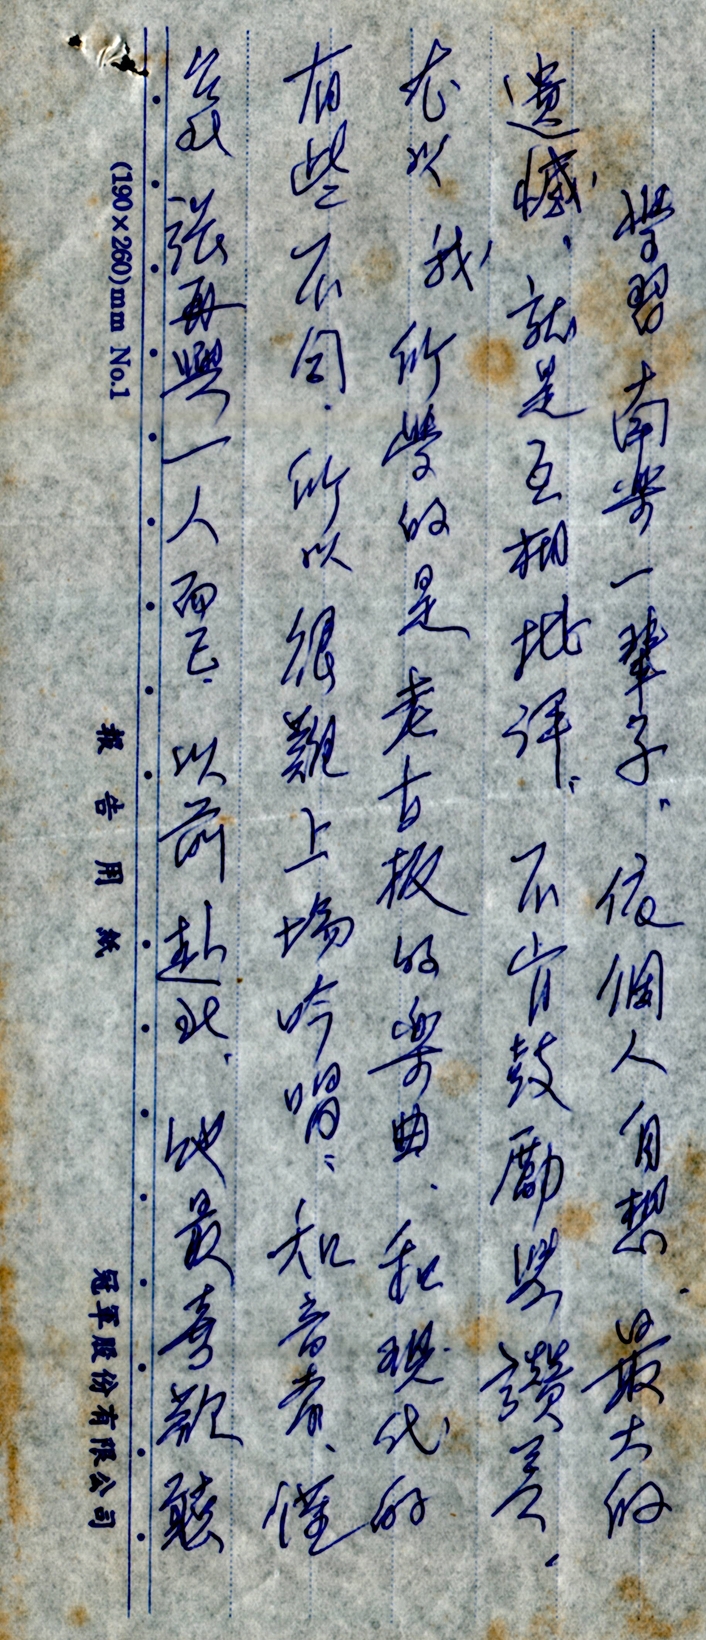 學習南樂一輩子。依個人自想、最大的
遺憾、就是互相批評、不肯鼓勵與讚美、
尤以我所學的是老古板的樂曲、和現代的
有些不同、所以很難上場吟唱、知音者、僅
台北張再興一人而已、以前赴北、他最喜歡聽
(190×260)mm No.1 報告用紙 冠軍股份有限公司